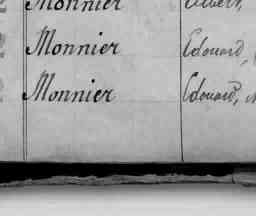 Monnier Albert,
Monnier Edouard,
Monnier Edouard,